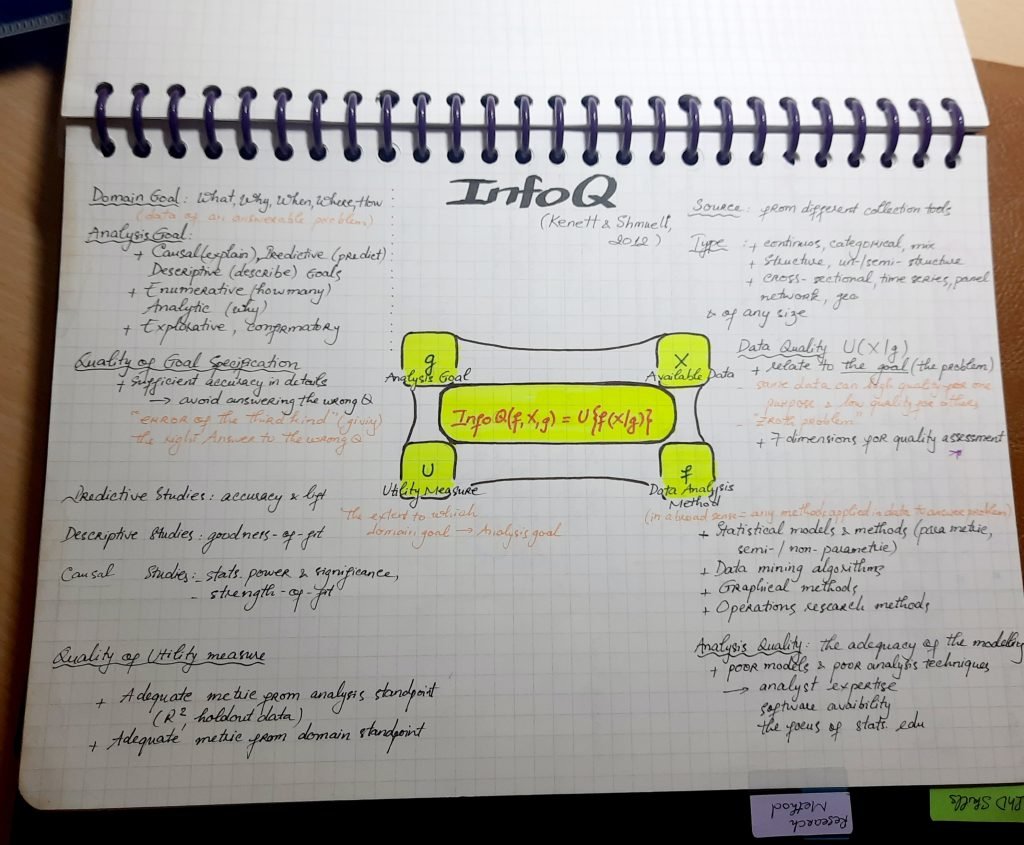 InfoQ
(Kenett & Shmuell,
2012)
Domain Goal: What, Why, When, Where, How
(data of an answerable problem)
Analysis Goal:
+ Causal (explain), Predictive (predict)
Descriptive (describe) Goals
+ Enumerative (how many)
Analytic (why)
+ Explorative, confirmatory
Quality of Goal Specification
+ sufficient accuracy in details
→ avoid answering the wrong Q
"error of the third kind" (giving)
the right Answer to the wrong Q
Predictive Studies: accuracy & lift
Descriptive Studies: goodness-of-fit
Causal Studies: - stats. power & significance,
- strength-of-fit
Quality of Utility measure
+ Adequate metric from analysis standpoint
(R², holdout data)
+ Adequate metric from domain standpoint
g
Analysis Goal
X
Available Data
InfoQ(f,X,g) = U{f(X|g)}
U
Utility Measure
f
Data Analysis
Method
The extent to which
domain goal → Analysis goal
Source: from different collection tools
Type: + continuos, categorical, mix
+ Structure, un-/semi-structure
+ cross-sectional, time series, panel
network, geo
& of any size
Data Quality U(X|g)
+ relate to the goal (the problem)
- same data can high quality for one
purpose & low quality for others
- "zroth problem"
+ 7 dimensions for quality assessment
(in a broad sense = any methods applied in data to answer problem)
+ Statistical models & methods (parametric,
semi-/non-parametric)
+ Data mining algorithms
+ Graphical methods
+ Operations research methods
Analysis Quality: the adequacy of the modelling
+ poor models & poor analysis techniques
→ analyst expertise
software avaibility
the focus of stats. edu
Research
Method
PhD Skills